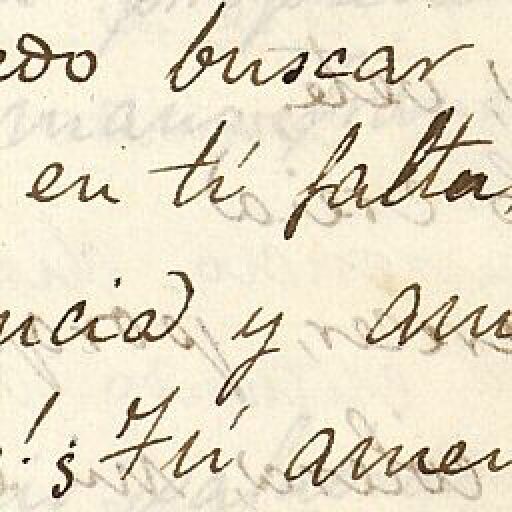 edo buscar
en tí falta
ncia y am
! ¿Tú amen